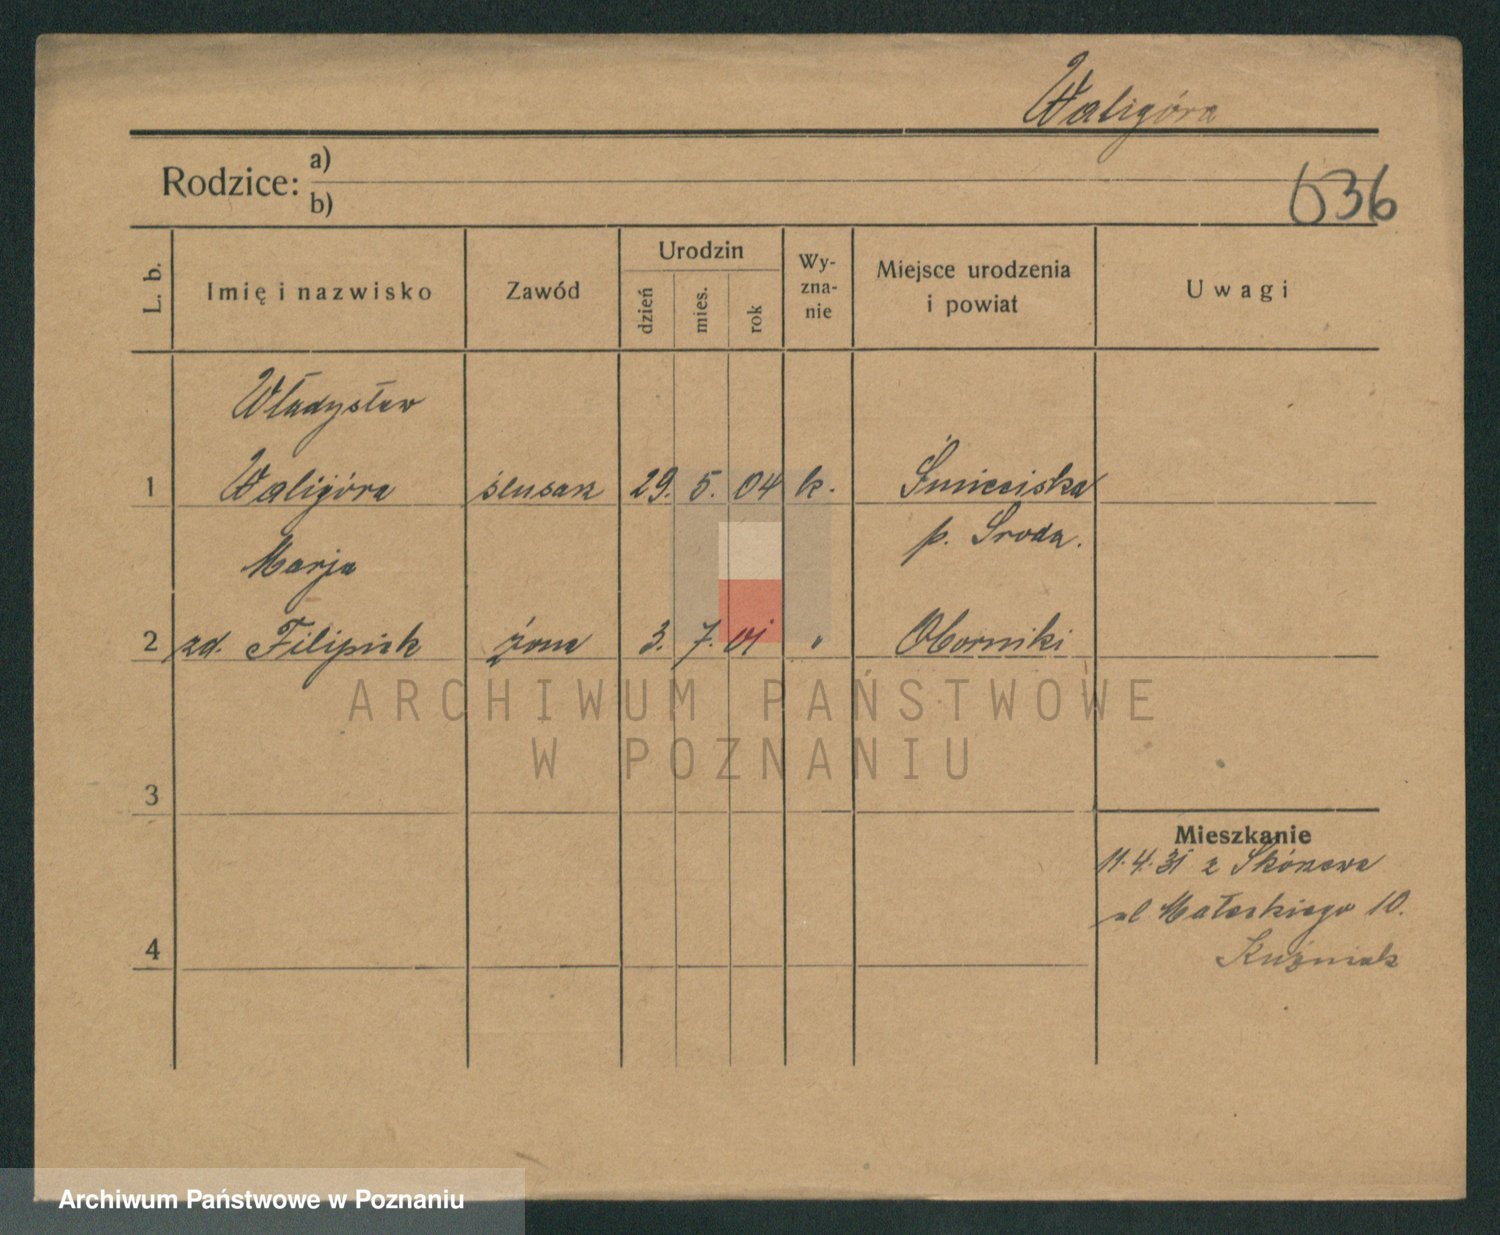 Waligóra
Rodzice: a)
b)
636
L. b.
Imię i nazwisko
Zawód
Urodzin
dzień
mies.
rok
Wy-
zna-
nie
Miejsce urodzenia
i powiat
Uwagi
Władysław
1 Waligóra ślusarz 29. 5. 04 k. Śnieciska
p. Środa.
Marja
2 zd. Filipiak żona 3. 7. 01 " Oborniki
ARCHIWUM PAŃSTWOWE
W POZNANIU
3
Mieszkanie
11.4.31 z
ul Małeckiego 10.
4
Kuźniak
Archiwum Państwowe w Poznaniu